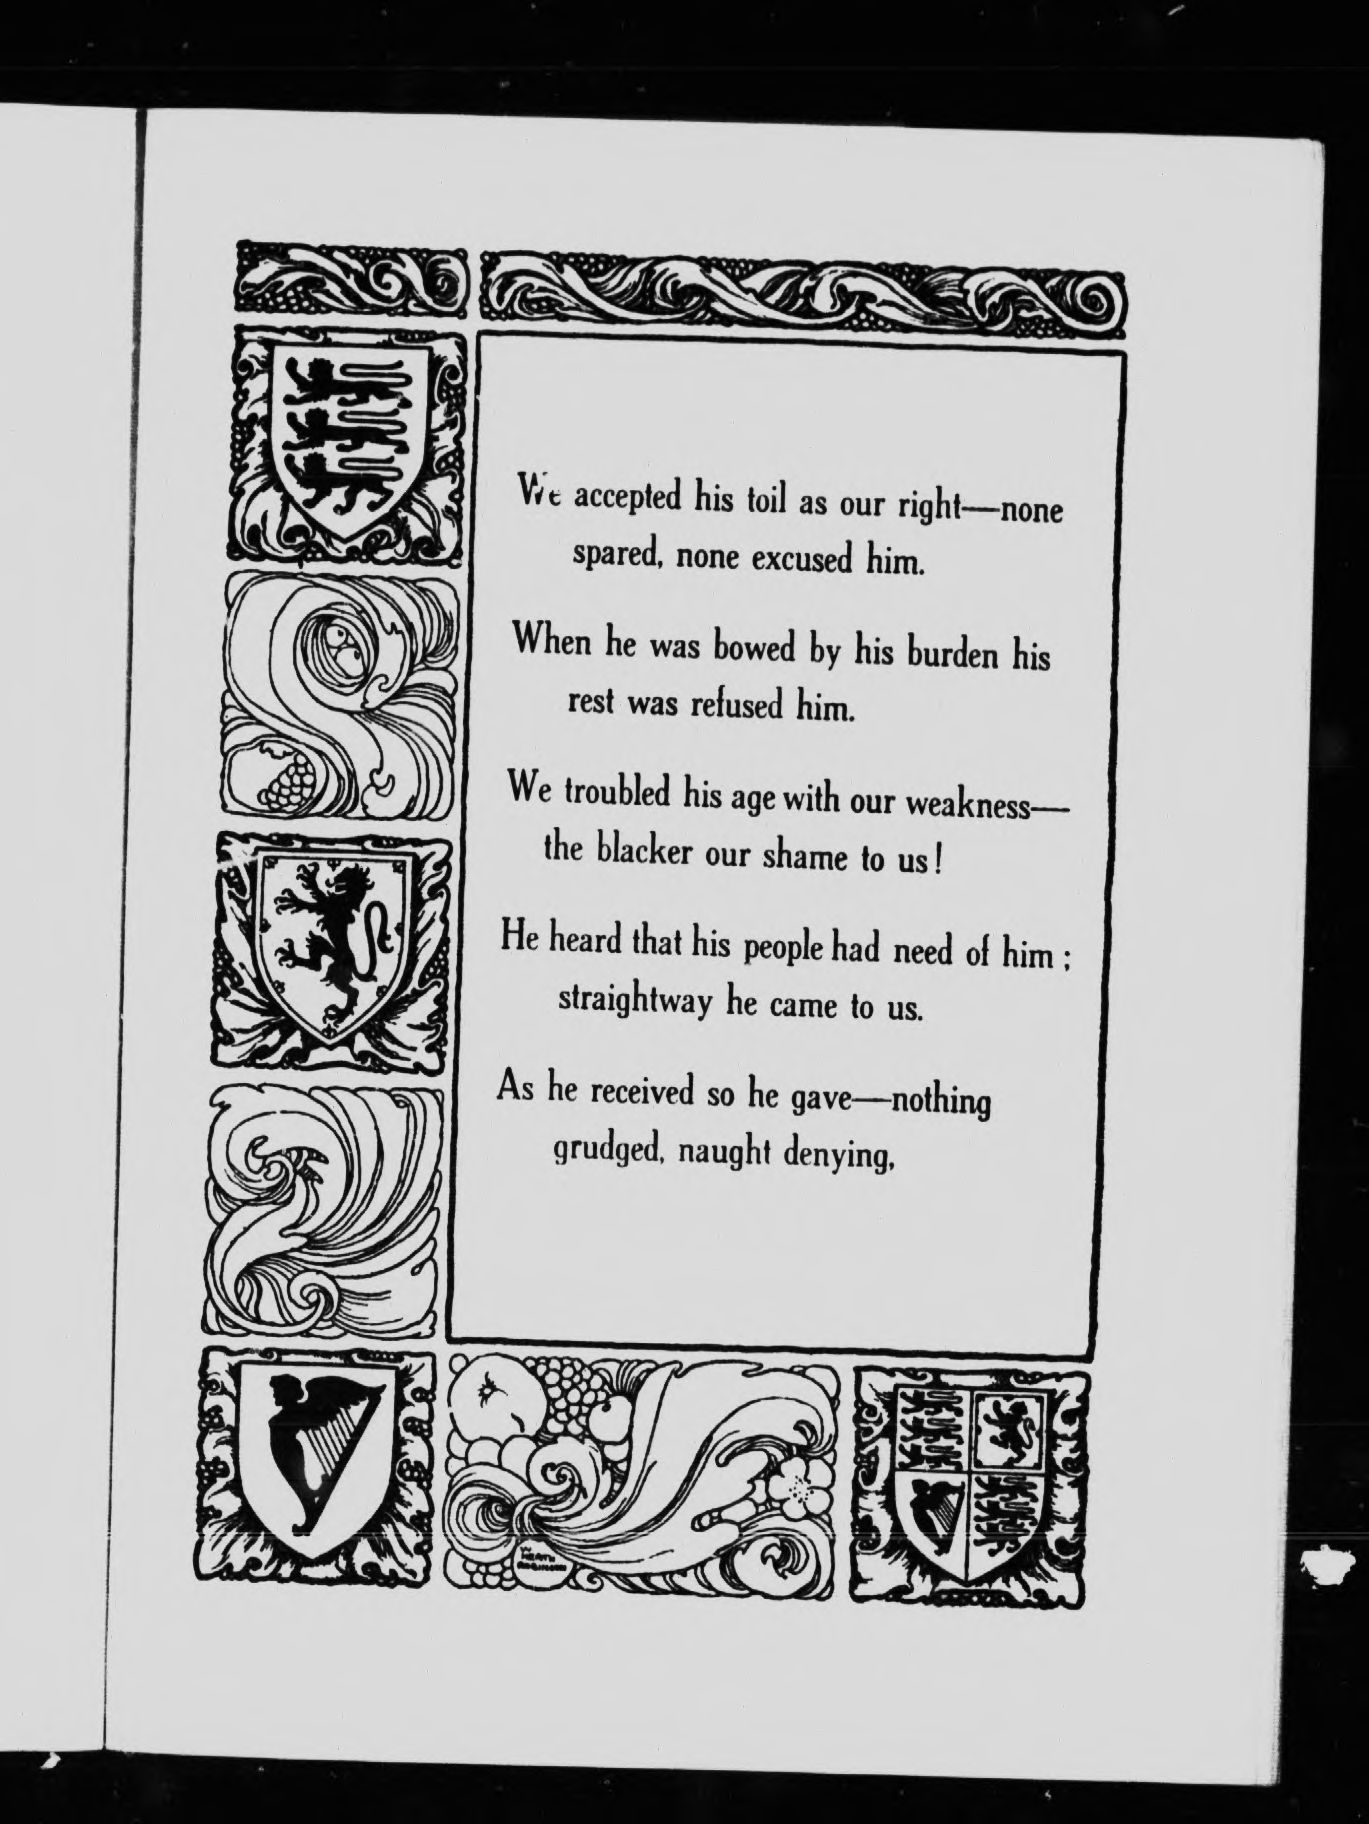 We accepted his toil as our right—none
spared, none excused him.
When he was bowed by his burden his
rest was refused him.
We troubled his age with our weakness—
the blacker our shame to us!
He heard that his people had need of him;
straightway he came to us.
As he received so he gave—nothing
grudged, naught denying,
W
HEATH
ROBINSON